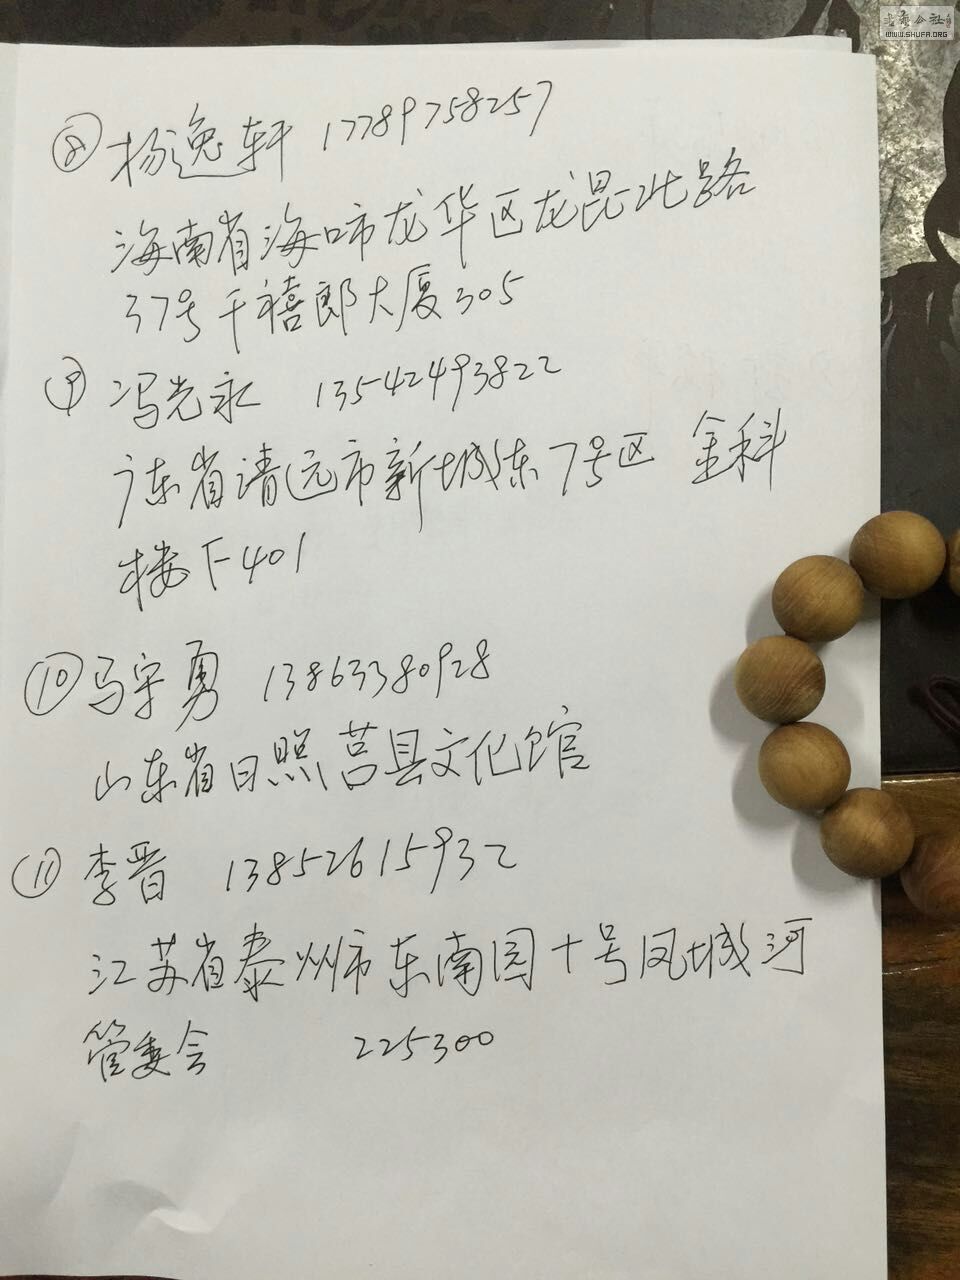 ⑧杨逸轩 17789758257
海南省海口市龙华区龙昆北路
37号千禧郎大厦305
⑨冯光永 13542493822
广东省清远市新城东7号区 金科
楼F401
⑩马守勇 13863380928
山东省日照莒县文化馆
⑪李晋 13852615932
江苏省泰州市东南园十号凤城河
管委会 225300
WWW.SHUFA.ORG